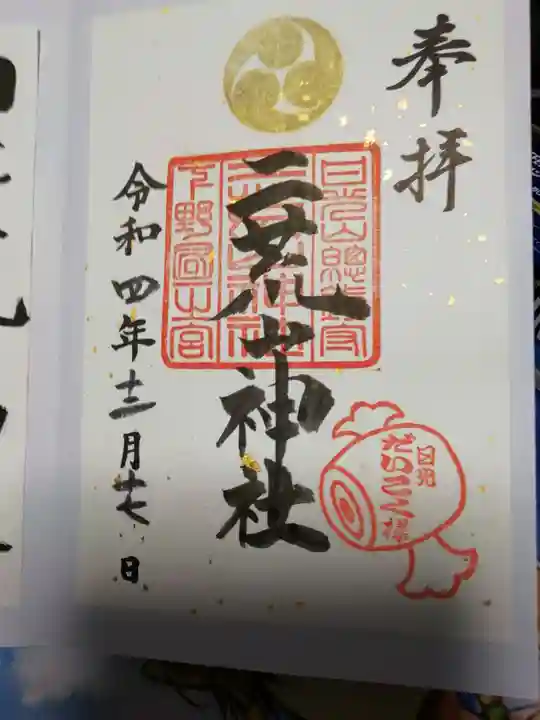 奉拝
日光山總鎮守
二荒山神社
下野國一之宮
二荒山神社
日光
だいこく様
令和四年十二月十七日